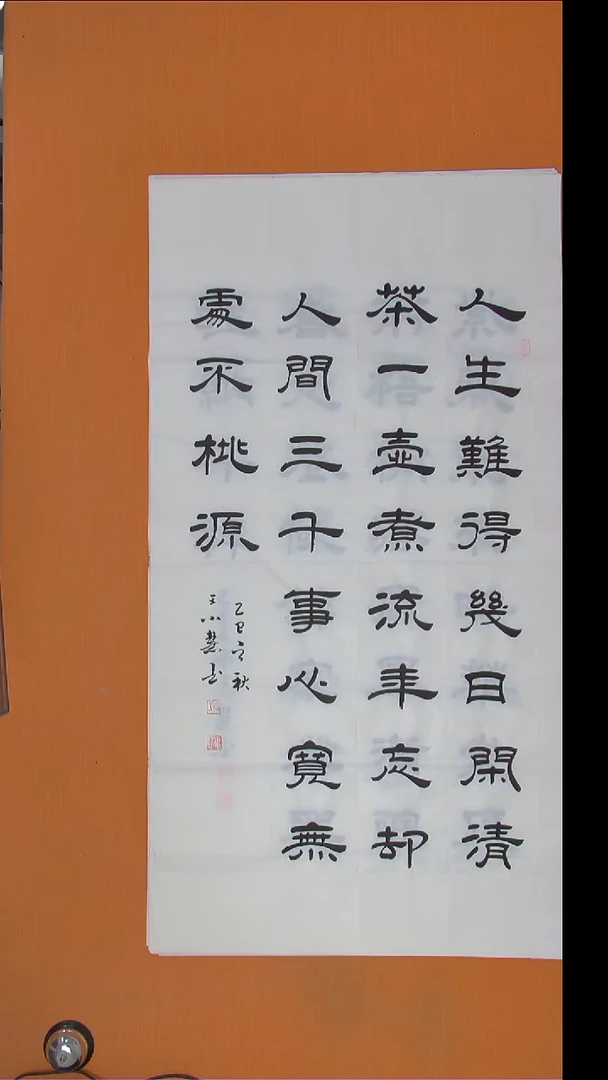 人生難得幾日閑清
茶一壺煮流年忘却
人間三千事心寬無
處不桃源
乙巳秋
王小慧书